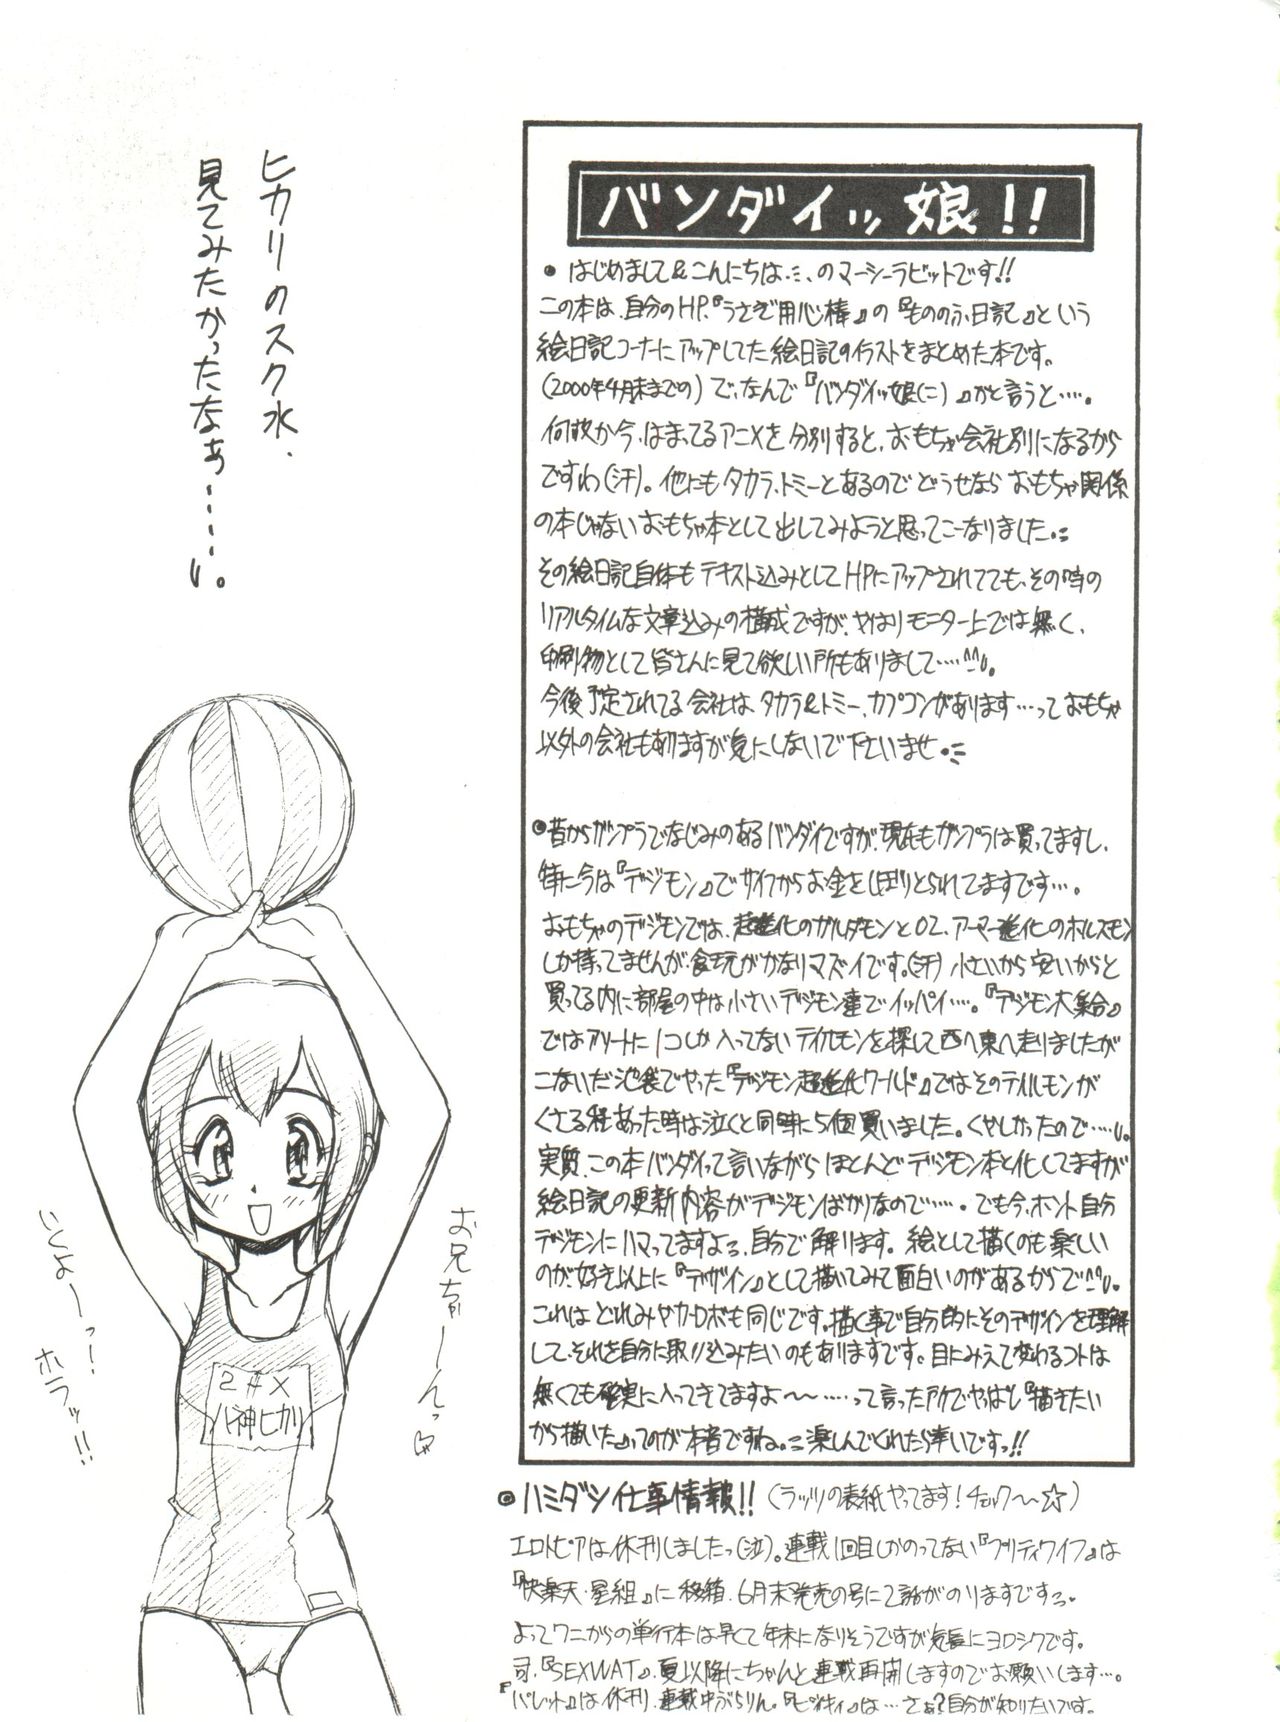 バンダイッ娘!!
● はじめまして&こんにちは…、のマーシーラビットです!!
この本は、自分のHP.『うさぎ用心棒』の『もののふ日記』という
絵日記コーナーにアップしてた絵日記のイラストをまとめた本です。
(2000年4月末までの) で、なんで『バンダイッ娘(こ)』かと言うと‥‥。
何故か今、はまってるアニメを分別すると、おもちゃ会社別になるから
ですわ(汗)。他にもタカラ、トミーとあるのでどうせなら おもちゃ関係
の本じゃないおもちゃ本として出してみようと思ってこーなりました。
その絵日記自体もテキスト込みとしてHPにアップされてても、その時の
リアルタイムな文章込みの構成ですが、やはりモニター上では無く、
印刷物として皆さんに見て欲しい所もありまして‥‥^^。
今後予定されてる会社は、タカラ&トミー、カプコンがあります…って おもちゃ
以外の会社もありますが気にしないで下さいませ。
●昔からガンプラでなじみのあるバンダイですが、現在もガンプラは買ってますし、
特に今は『デジモン』でサイフからお金をしぼりとられてますです…。
おもちゃのデジモンでは、超進化のガルダモンと02、アーマー進化のホルスモン
しか持ってませんが、食玩がかなりマズイです。(汗) 小さいから安いからと
買ってる内に部屋の中は小さいデジモン達でイッパイ‥‥。『デジモン大集合』
ではアソートに1コしか入ってないテイルモンを探して西へ東へ走りましたが
こないだ池袋でやった『デジモン超進化ワールド』ではそのテイルモンが
くさる程あった時は泣くと同時に5個買いました。くやしかったので‥‥。
実質、この本バンダイって言いながら ほとんどデジモン本と化してますが
絵日記の更新内容がデジモンばかりなので‥‥。でも今、ホント自分
デジモンにハマってますよっ、自分で解ります。絵として描くのも楽しい
のが、好き以上に『デザイン』として描いてみて面白いのがあるからで^^。
これは どれみやカーロボも同じです。描く事で自分的にそのデザインを理解
して、それを自分に取り込みたいのもありますです。目にみえて変わるコトは
無くても確実に入ってきてますよ〜〜‥‥って言ったアトでやっぱし『描きたい
から描いた』ってのが本音ですね。楽しんでくれたら幸いですっ!!
◎ハミダシ仕事情報!! (ラッツの表紙やってます!チェック〜〜☆)
エロトピアは休刊しましたっ(泣)。連載1回目しかのってない『プリティワイフ』は
『快楽天・星組』に移籍、6月末発売の号にて話がのりますですっ。
よってワニからの単行本は早くて年末になりそうですが気長にヨロシクです。
司.『SEXWAT』、夏以降にちゃんと連載再開しますのでお願いします…。
『パレット』は休刊、連載中ぶらりん。『ピンキィ』は…さぁ?自分が知りたいです。
ヒカリのスク水、
見てみたかったなぁ‥‥‥。
お兄ちゃーーんっ♡
いくよーーっ!
ホラッ!!
2年X
八神ヒカリ